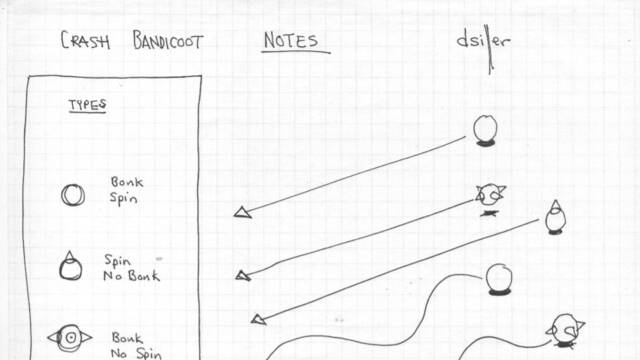 CRASH BANDICOOT NOTES
TYPES
Bonk
Spin
Spin
No Bonk
Bonk
No Spin